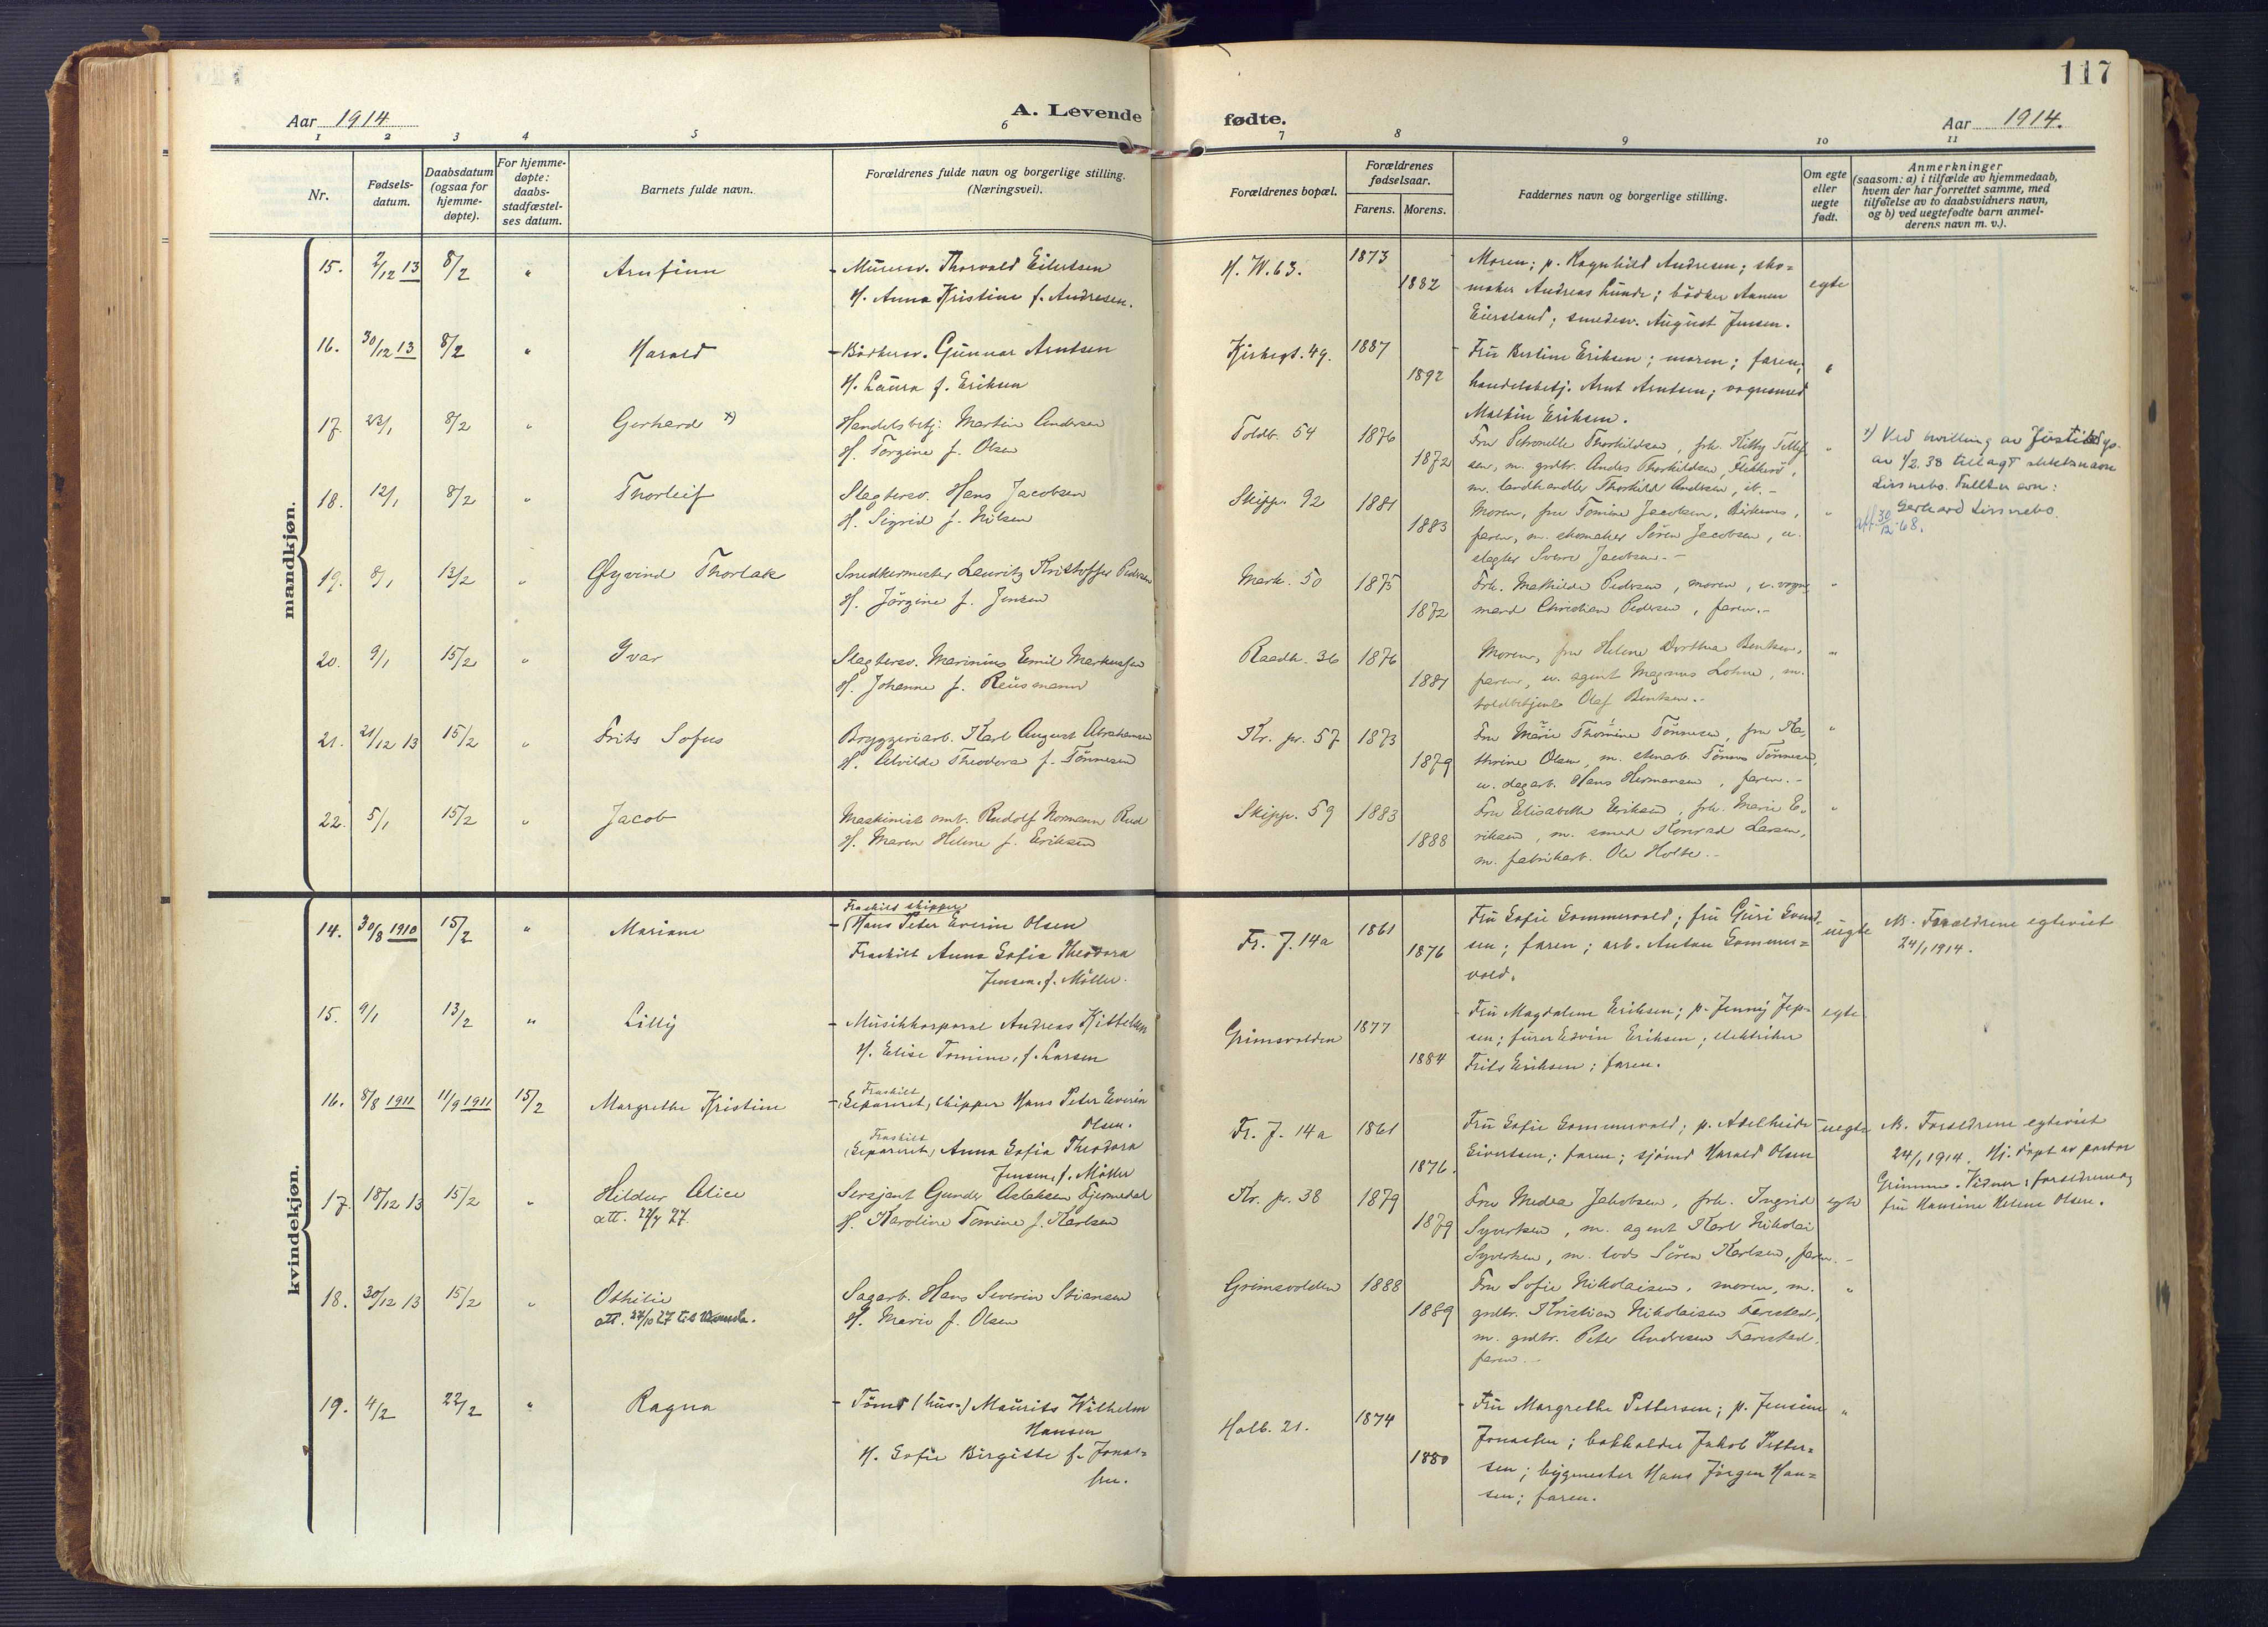 117
Aar 1914
A. Levende
fødte.
Aar 1914.
1 2 3 4 5 6 7 8 9 10 11
Nr.
Fødsels-
datum.
Daabsdatum
(ogsaa for
hjemme-
døpte).
For hjemme-
døpte:
daabs-
stadfæstel-
ses datum.
Barnets fulde navn.
Forældrenes fulde navn og borgerlige stilling.
(Næringsvei).
Forældrenes bopæl.
Forældrenes
fødselsaar.
Farens. Morens.
Faddernes navn og borgerlige stilling.
Om egte
eller
uegte
født.
Anmerkninger
(saasom: a) i tilfælde av hjemmedaab,
hvem der har forrettet samme, med
tilføielse av to daabsvidners navn,
og b) ved uegtefødte barn anmel-
derens navn m. v.).
mandkjøn.
15. 2/12 13 8/2 " Arnfinn - Murersv. Thorvald Eilertsen H. W. 63. 1873 Moren; p. Ragnhild Andresen; sko=
H. Anna Kristine f. Andresen. 1882 maker Andreas Lunde; bødker Aanen egte
Eiersland; smedesv. August Jensen.
16. 30/12 13 8/2 " Harald - Bødkersv. Gunnar Arntsen Kirkegt. 49. 1887 - Fru Bertine Eriksen; moren; faren; "
H. Laura f. Eriksen 1892 handelsbetj. Arnt Arntsen; vognsmed
Martin Eriksen.
17. 23/1 8/2 " Gerhard x) Handelsbetj. Martin Andersen Toldb. 54 1876 Fru Petronelle Thorkildsen, frk. Kitty Tellef- "
H. Torgine f. Olsen 1872 sen, m. grdbr. Anders Thorkildsen, Flekkerø,
m. landhandler Thorkild Andersen, ib. -
x) Ved bevilling av Justitsdep.
av 1/2 38 tillagt slektsnavn
Lissnebo. Fullt navn:
Gerhard Lissnebo.
utf 30/12-68.
18. 12/1 8/2 " Thorleif Slagtersv. Hans Jacobsen Skipp. 92 1881 Moren, fru Tomine Jacobsen, Birkenes, "
H. Sigrid f. Nilsen 1883 faren, m. skomaker Søren Jacobsen, u.
slagter Sverre Jacobsen. -
19. 8/1 13/2 " Øyvind Thorlak Snedkermester Lauritz Kristoffer Pedersen Mark. 50 1875 Frk. Mathilde Pedersen, moren, u. vogn- "
H. Jørgine f. Jensen 1872 mand Christian Pedersen, faren. -
20. 9/1 15/2 " Yvar Slagtersv. Marinius Emil Markussen Raadh. 36 1876 Moren, fru Helene Dorthea Bentsen, "
H. Johanne f. Reusmann 1881 faren, u. agent Magnus Lohne, m.
toldbetjent Olaf Bentsen. -
21. 21/12 13 15/2 " Frits Sofus Bryggeriarb. Karl August Abrahamsen Kr. pr. 57 1873 Fru Marie Thomine Tønnesen, fru Ka- "
H. Alvilde Theodora f. Tønnesen 1879 thrine Olsen, m. stenarb. Tønnes Tønnesen,
u. dagarb. Hans Hermansen, faren. -
22. 5/1 15/2 " Jacob Maskinist omb. Rudolf Normann Rud Skipp. 59 1883 Fru Elisabeth Eriksen, frk. Marie E- "
H. Maren Helene f. Eriksen 1888 riksen, m. smed Konrad Larsen,
m. fabrikarb. Ole Holte. -
kvindekjøn.
14. 30/8 1910 15/2 " Mariane Fraskilt skipper
- Hans Peter Severin Olsen Fr. J. 14a 1861 Fru Sofie Sommervold; fru Guri Gund- uegte M. Foreldrene egteviet
Fraskilt Anna Sofie Theodora 1876 sen; faren; arb. Anton Sommer= 24/1 1914.
Jensen, f. Møller. vold.
15. 9/1 13/2 " Lilly - Musikkorporal Andreas Kittelsen Grimsvolden 1877 - Fru Magdalene Eriksen; p. Jenny Jep- egte
H. Elise Tomine, f. Larsen 1884 sen; furer Edvin Eriksen; elektriker
Frits Eriksen; faren.
16. 8/8 1911 11/9 1911 15/2 Margrethe Kristine Fraskilt
- (Separeret) skipper Hans Peter Severin Fr. J. 14a 1861 Fru Sofie Sommervold; p. Adelheide uegte M. Foreldrene egteviet
Olsen.
Fraskilt
(Separeret) Anna Sofie Theodora 1876. Sivertsen; faren; sjømd Harald Olsen 24/1 1914. Hj. døpt av pastor
Jensen, f. Møller Grimme. Vidner: foreldrene og
fru Hansine Helene Olsen.
17. 18/12 13 15/2 " Hildur Alice Sersjant Gunder Aslaksen Fjermedal Kr. pr. 38 1879 Fru Medea Jakobsen, frk. Ingrid egte
att. 22/7 27. H. Karoline Tomine f. Karlsen 1879 Syvertsen, m. agent Karl Nikolai
Syvertsen, m. lods Søren Karlsen, faren. -
18. 30/12 13 15/2 " Othilie Sagarb. Hans Severin Stiansen Grimsvolden 1888 Fru Sofie Nikolaisen, moren, m. "
att. 27/10 27 til H. Marie f. Olsen 1889 grdbr. Kristian Nikolaisen Farestad,
m. grdbr. Peter Andresen Farestad,
faren. -
19. 4/2 22/2 " Ragna - Tømr (hus-) Maurits Wilhelm Holb. 21. 1874 - Fru Margrethe Pettersen; p. Jensine "
Hansen Jonassen; bokholder Jakob Petter=
H. Sofie Birgitte f. Jonas= 1880 sen; bygmester Hans Jørgen Han=
sen. sen; faren.